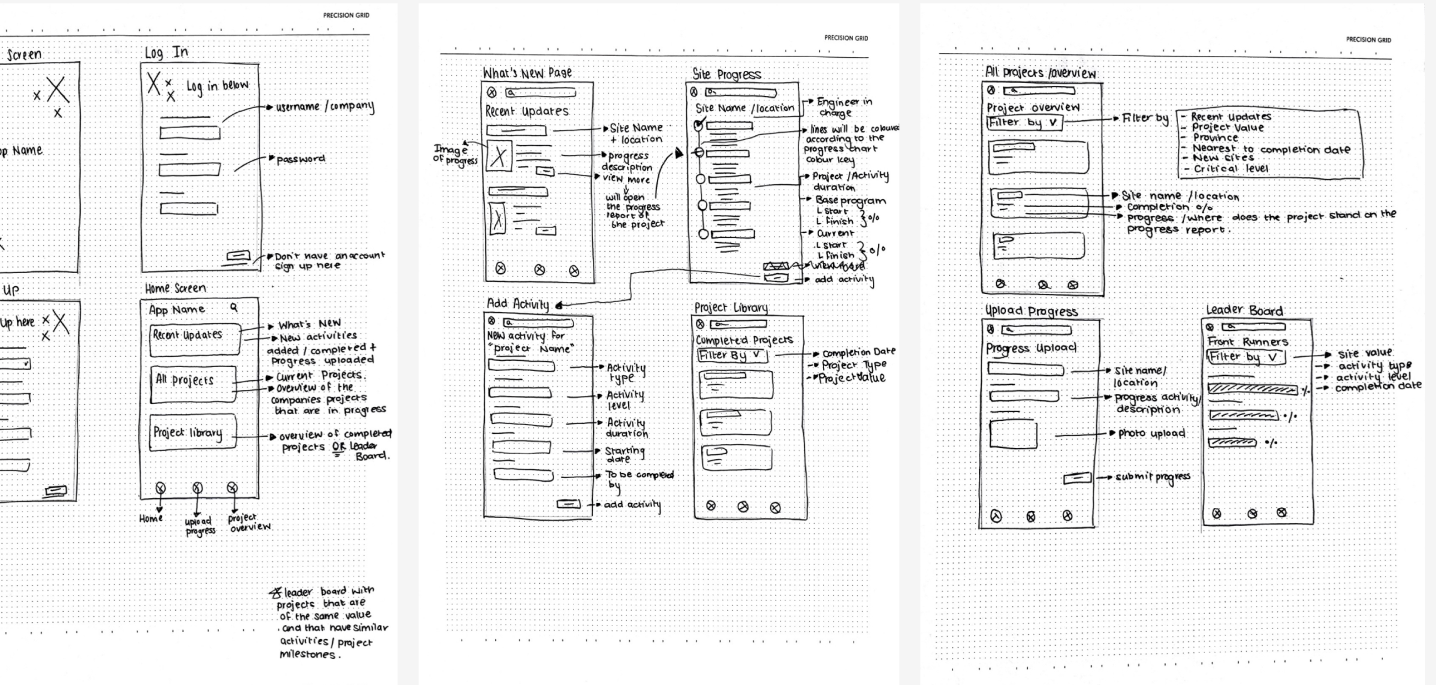 PRECISION GRID
Screen
pp Name
UP
Up here
Log In
Log in below
username/company
password
Don't have an account
sign up here
Home Screen
App Name
Recent Updates
What's New
New activities
added / completed +
Progress uploaded
All projects
Current Projects.
Overview of the
companies projects
that are in progress
Project library
overview of completed
projects OR leader
Board.
Home
upload
progress
project
overview
leader board with
projects that are
of the same value
and that have similar
activities / project
milestones.
PRECISION GRID
What's New Page
Recent Updates
Image
of progress
Site Name
+ location
progress
description
view more
will open
the progress
report of
the project
Site Progress
Site Name /location
Engineer in
charge
lines will be coloured
according to the
progress chart
colour key
Project /Activity
duration
Base program
L Start
L Finish
%
Current
L Start
L Finish
%
add activity
Add Activity
New activity for
"project Name"
Activity
type
Activity
level
Activity
duration
Starting
date
To be completed
by
add activity
Project Library
Completed Projects
Filter By V
Completion Date
Project Type
Project Value
PRECISION GRID
All projects /overview
Project overview
Filter by V
Filter by
- Recent updates
- Project Value
- Province
- Nearest to completion date
- New sites
- Critical level
Site name /location
Completion %
progress /where does the project stand on the
progress report.
Upload Progress
Progress Upload
site name/
location
progress activity/
description
photo upload
submit progress
Leader Board
Front Runners
Filter by V
site value
activity type
activity level
completion date
%
%
%